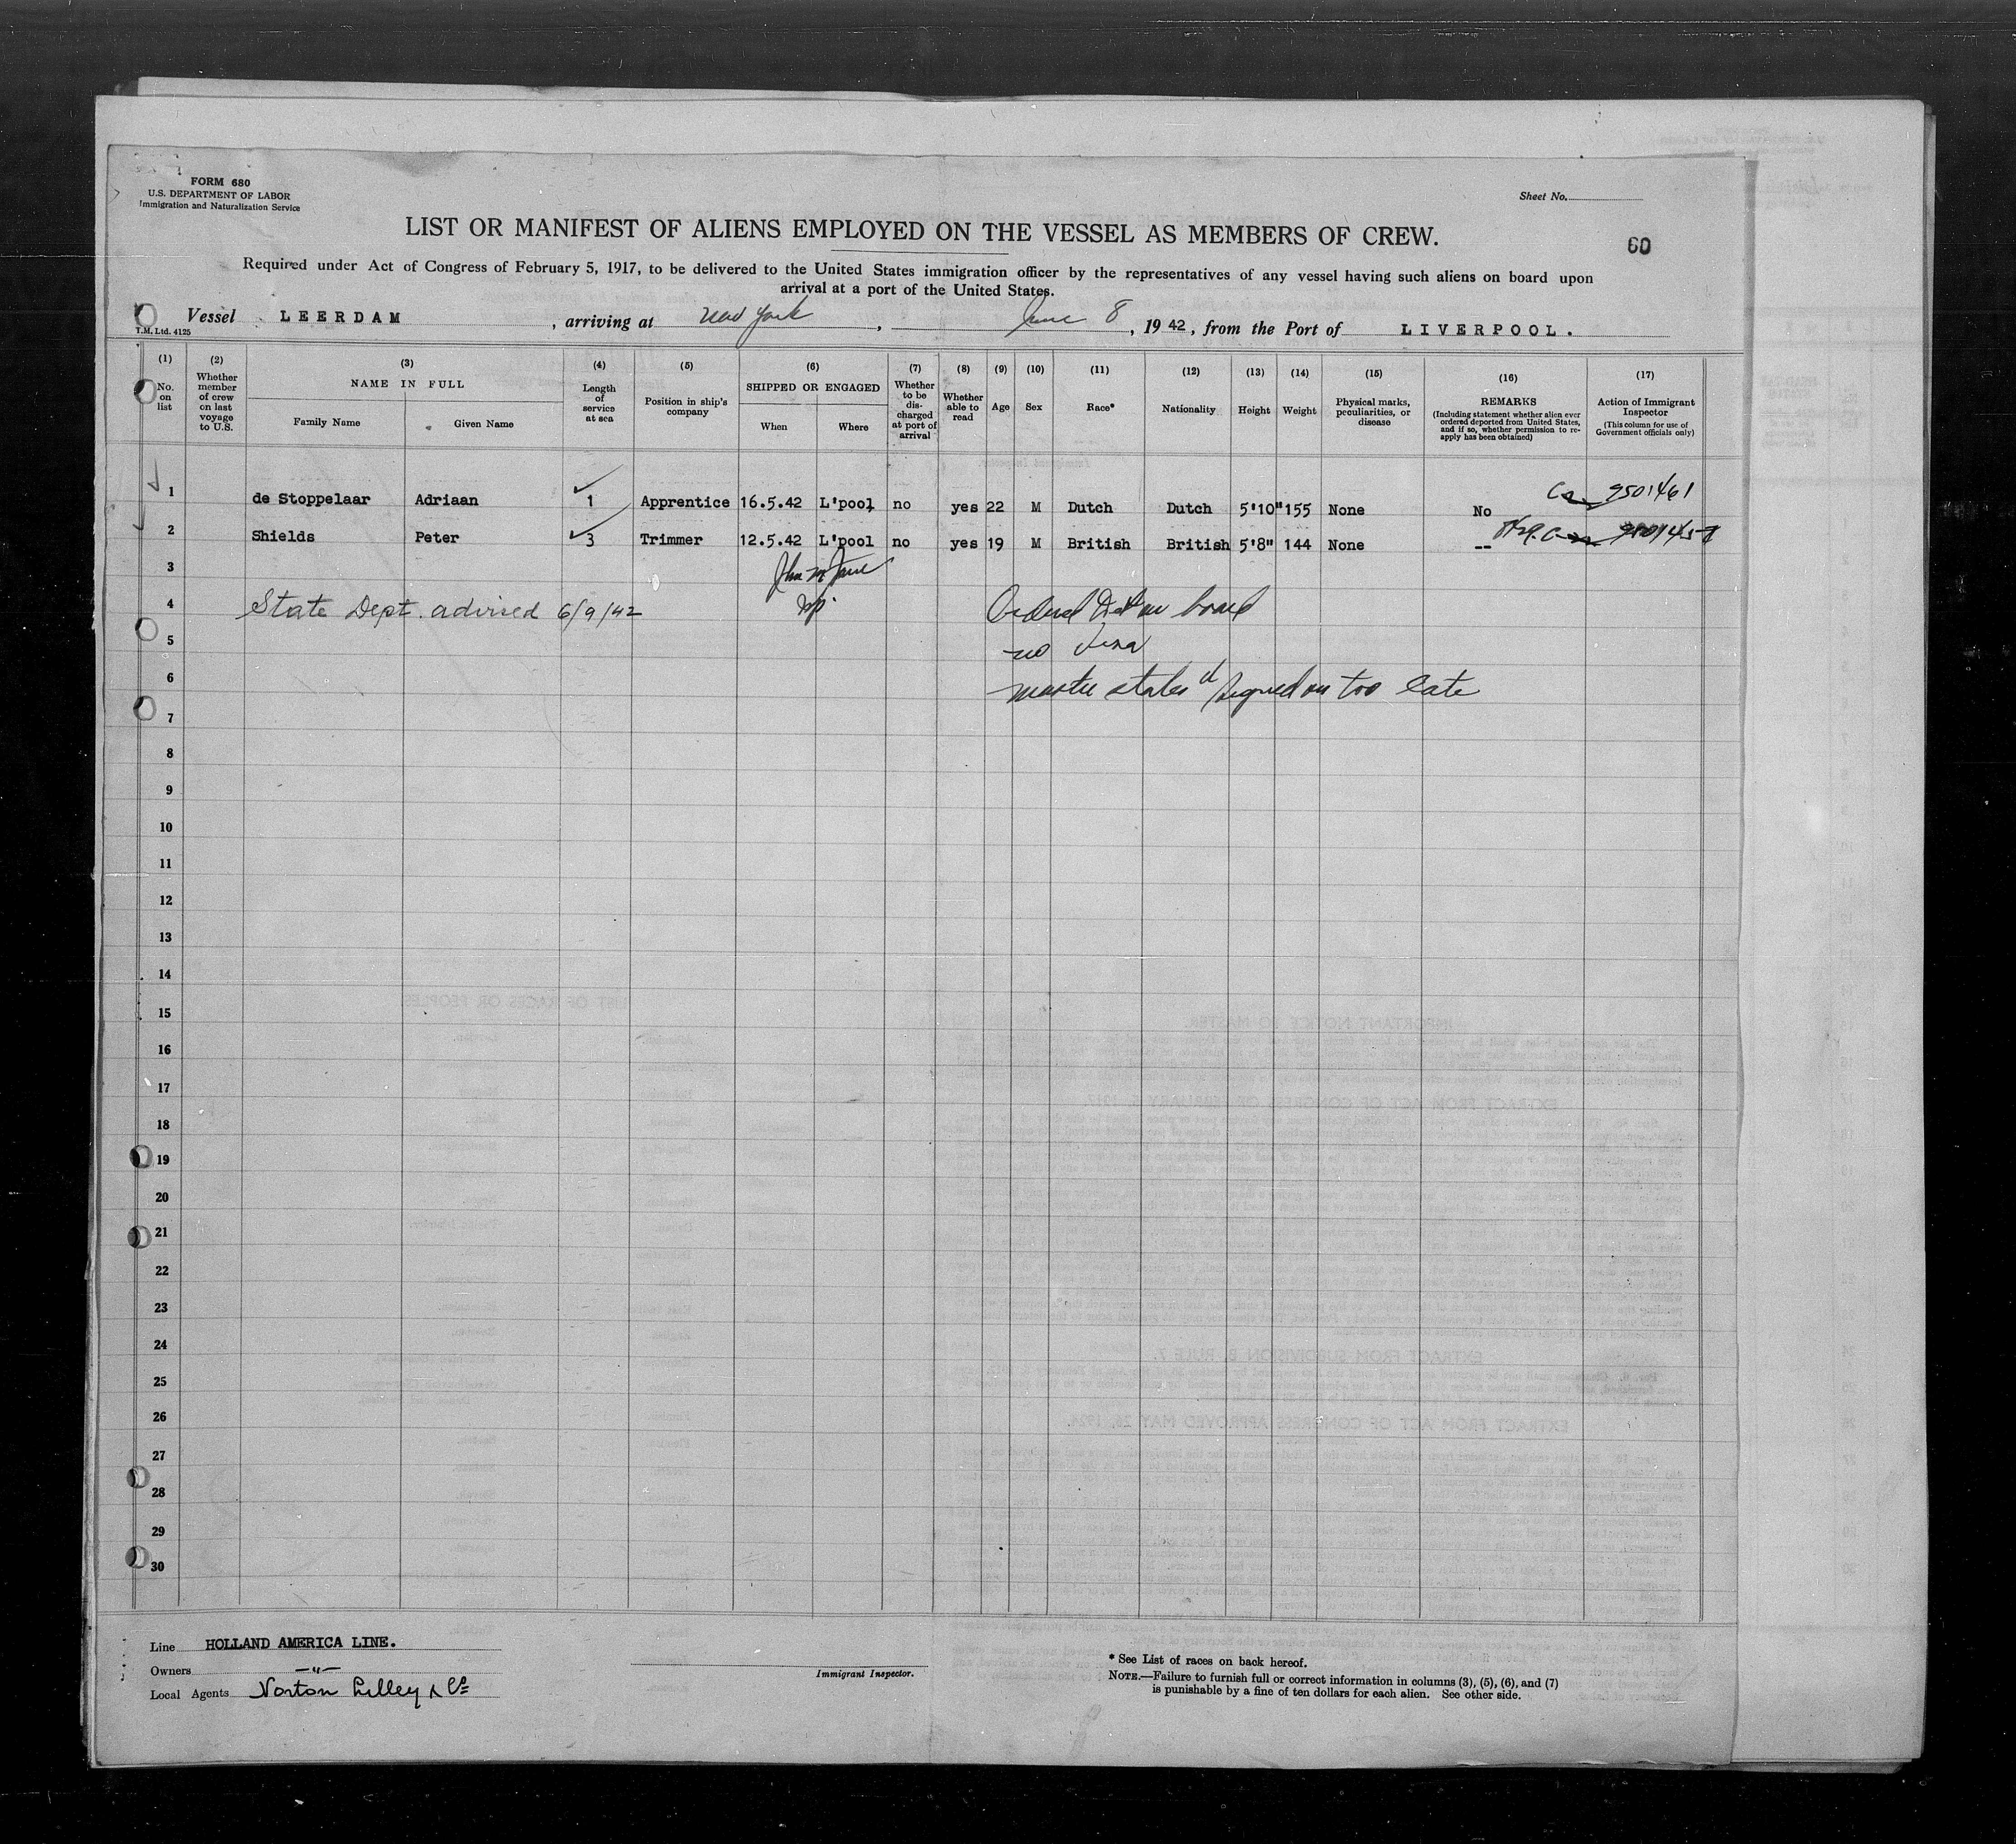 FORM 680
U.S. DEPARTMENT OF LABOR
Immigration and Naturalization Service
Sheet No.
LIST OR MANIFEST OF ALIENS EMPLOYED ON THE VESSEL AS MEMBERS OF CREW.
60
Required under Act of Congress of February 5, 1917, to be delivered to the United States immigration officer by the representatives of any vessel having such aliens on board upon
arrival at a port of the United States.
Vessel LEERDAM, arriving at New York, June 8, 1942, from the Port of LIVERPOOL.
T.M. Ltd. 4125
(1) No. on list
(2) Whether member of crew on last voyage to U.S.
(3) NAME IN FULL
Family Name
Given Name
(4) Length of service at sea
(5) Position in ship's company
(6) SHIPPED OR ENGAGED
When
Where
(7) Whether to be dis-charged at port of arrival
(8) Whether able to read
(9) Age
(10) Sex
(11) Race*
(12) Nationality
(13) Height
(14) Weight
(15) Physical marks, peculiarities, or disease
(16) REMARKS
(Including statement whether alien ever ordered deported from United States, and if so, whether permission to re-apply has been obtained)
(17) Action of Immigrant Inspector
(This column for use of Government officials only)
1 de Stoppelaar Adriaan 1 Apprentice 16.5.42 L'pool no yes 22 M Dutch Dutch 5'10" 155 None No 9501461
2 Shields Peter 3 Trimmer 12.5.42 L'pool no yes 19 M British British 5'8" 144 None --
3
4 State Dept. advised 6/9/42 Ordered on board
5 no visa
6 master states signed on too late
7
8
9
10
11
12
13
14
15
16
17
18
19
20
21
22
23
24
25
26
27
28
29
30
Line HOLLAND AMERICA LINE.
Owners —"—
Local Agents Norton Lilley & Co
Immigrant Inspector.
* See List of races on back hereof.
NOTE.—Failure to furnish full or correct information in columns (3), (5), (6), and (7)
is punishable by a fine of ten dollars for each alien. See other side.